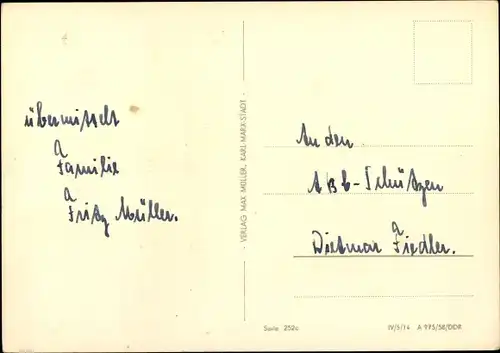 übermittelt
Familie
Fritz Müller.
VERLAG MAX MÜLLER, KARL-MARX-STADT
An den
ABC-Schützen
Dietmar Fiedler.
Serie 252c
IV/5/14 A 975/58/DDR